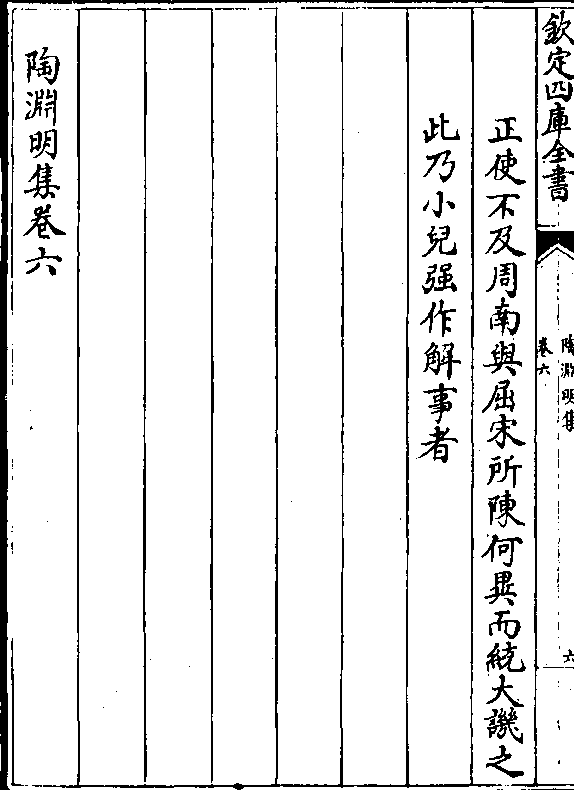 欽定四庫全書
陶淵明集
卷六
六
正使不及周南與屈宋所陳何異而統大譏之
此乃小兒强作解事者
陶淵明集卷六